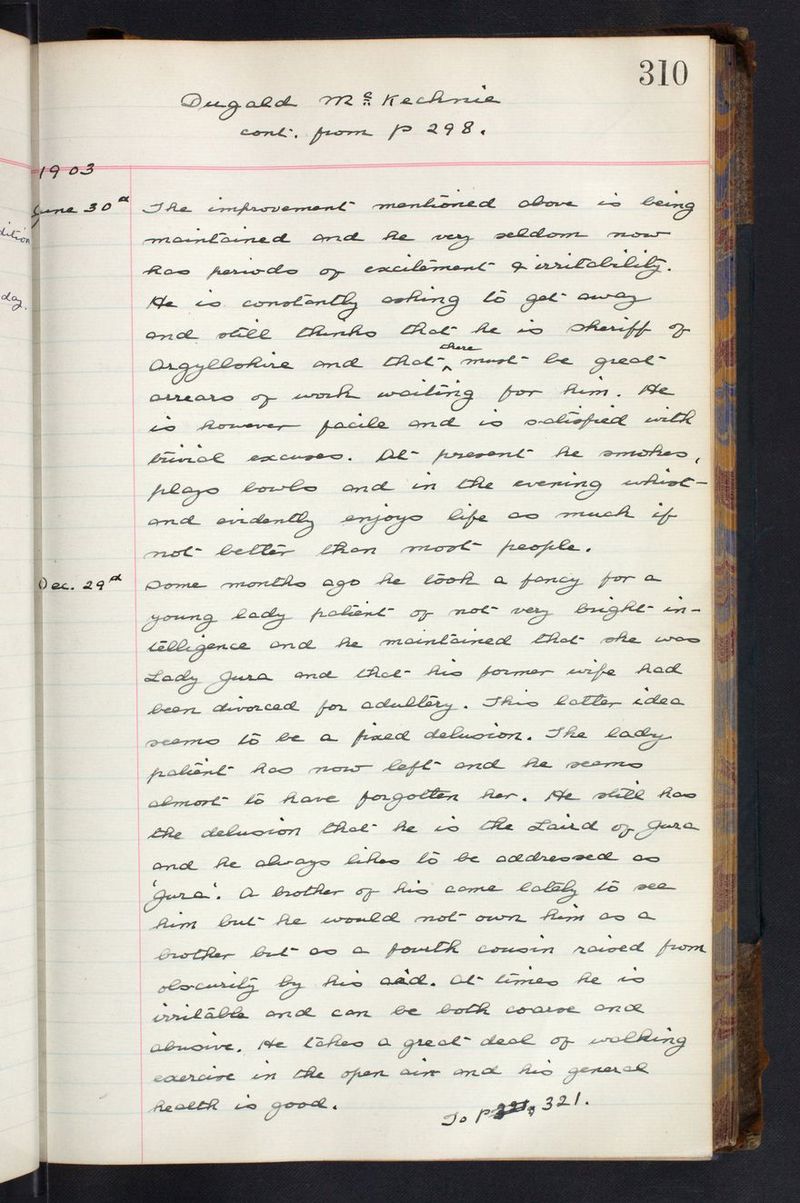 310
Dugald McKechnie
cont. from p 298.
1903
June 30th The improvement mentioned above is being
maintained and he very seldom now
has periods of excitement & irritability.
He is constantly asking to get away
and still thinks that he is sheriff of
Argyllshire and that there must be great
arrears of work waiting for him. He
is however facile and is satisfied with
trivial excuses. At present he smokes,
plays bowls and in the evening whist
and evidently enjoys life as much if
not better than most people.
Dec. 29th Some months ago he took a fancy for a
young lady patient of not very bright in-
telligence and he maintained that she was
Lady Jura and that his former wife had
been divorced for adultery. This latter idea
seems to be a fixed delusion. The lady
patient has now left and he seems
almost to have forgotten her. He still has
the delusion that he is the Laird of Jura
and he always likes to be addressed as
'Jura'. A brother of his came lately to see
him but he would not own him as a
brother but as a fourth cousin raised from
obscurity by his aid. At times he is
irritable and can be both coarse and
abusive. He takes a great deal of walking
exercise in the open air and his general
health is good.
To p 321.
dition
day.